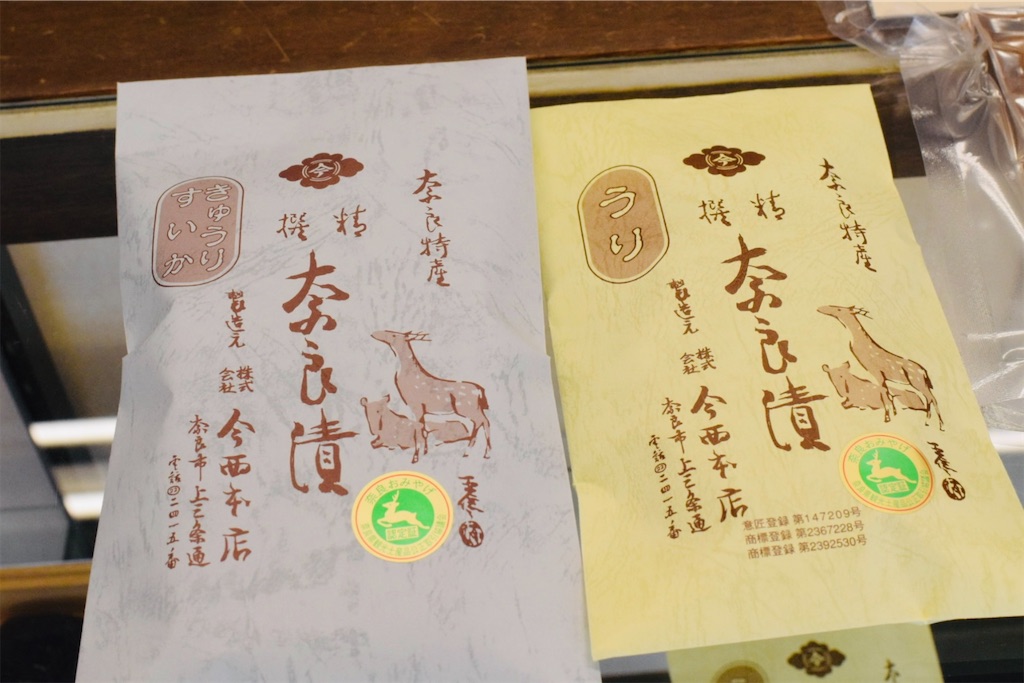 奈良特産
今
精撰
奈良漬
きゅうり
すいか
製造元
株式会社
今西本店
奈良市上三条通
電話㉒二四一五番
奈良おみやげ
認定証
奈良特産
今
精撰
奈良漬
うり
製造元
株式会社
今西本店
奈良市上三条通
電話㉒二四一五番
奈良おみやげ
認定証
意匠登録 第147209号
商標登録 第2367228号
商標登録 第2392530号
今